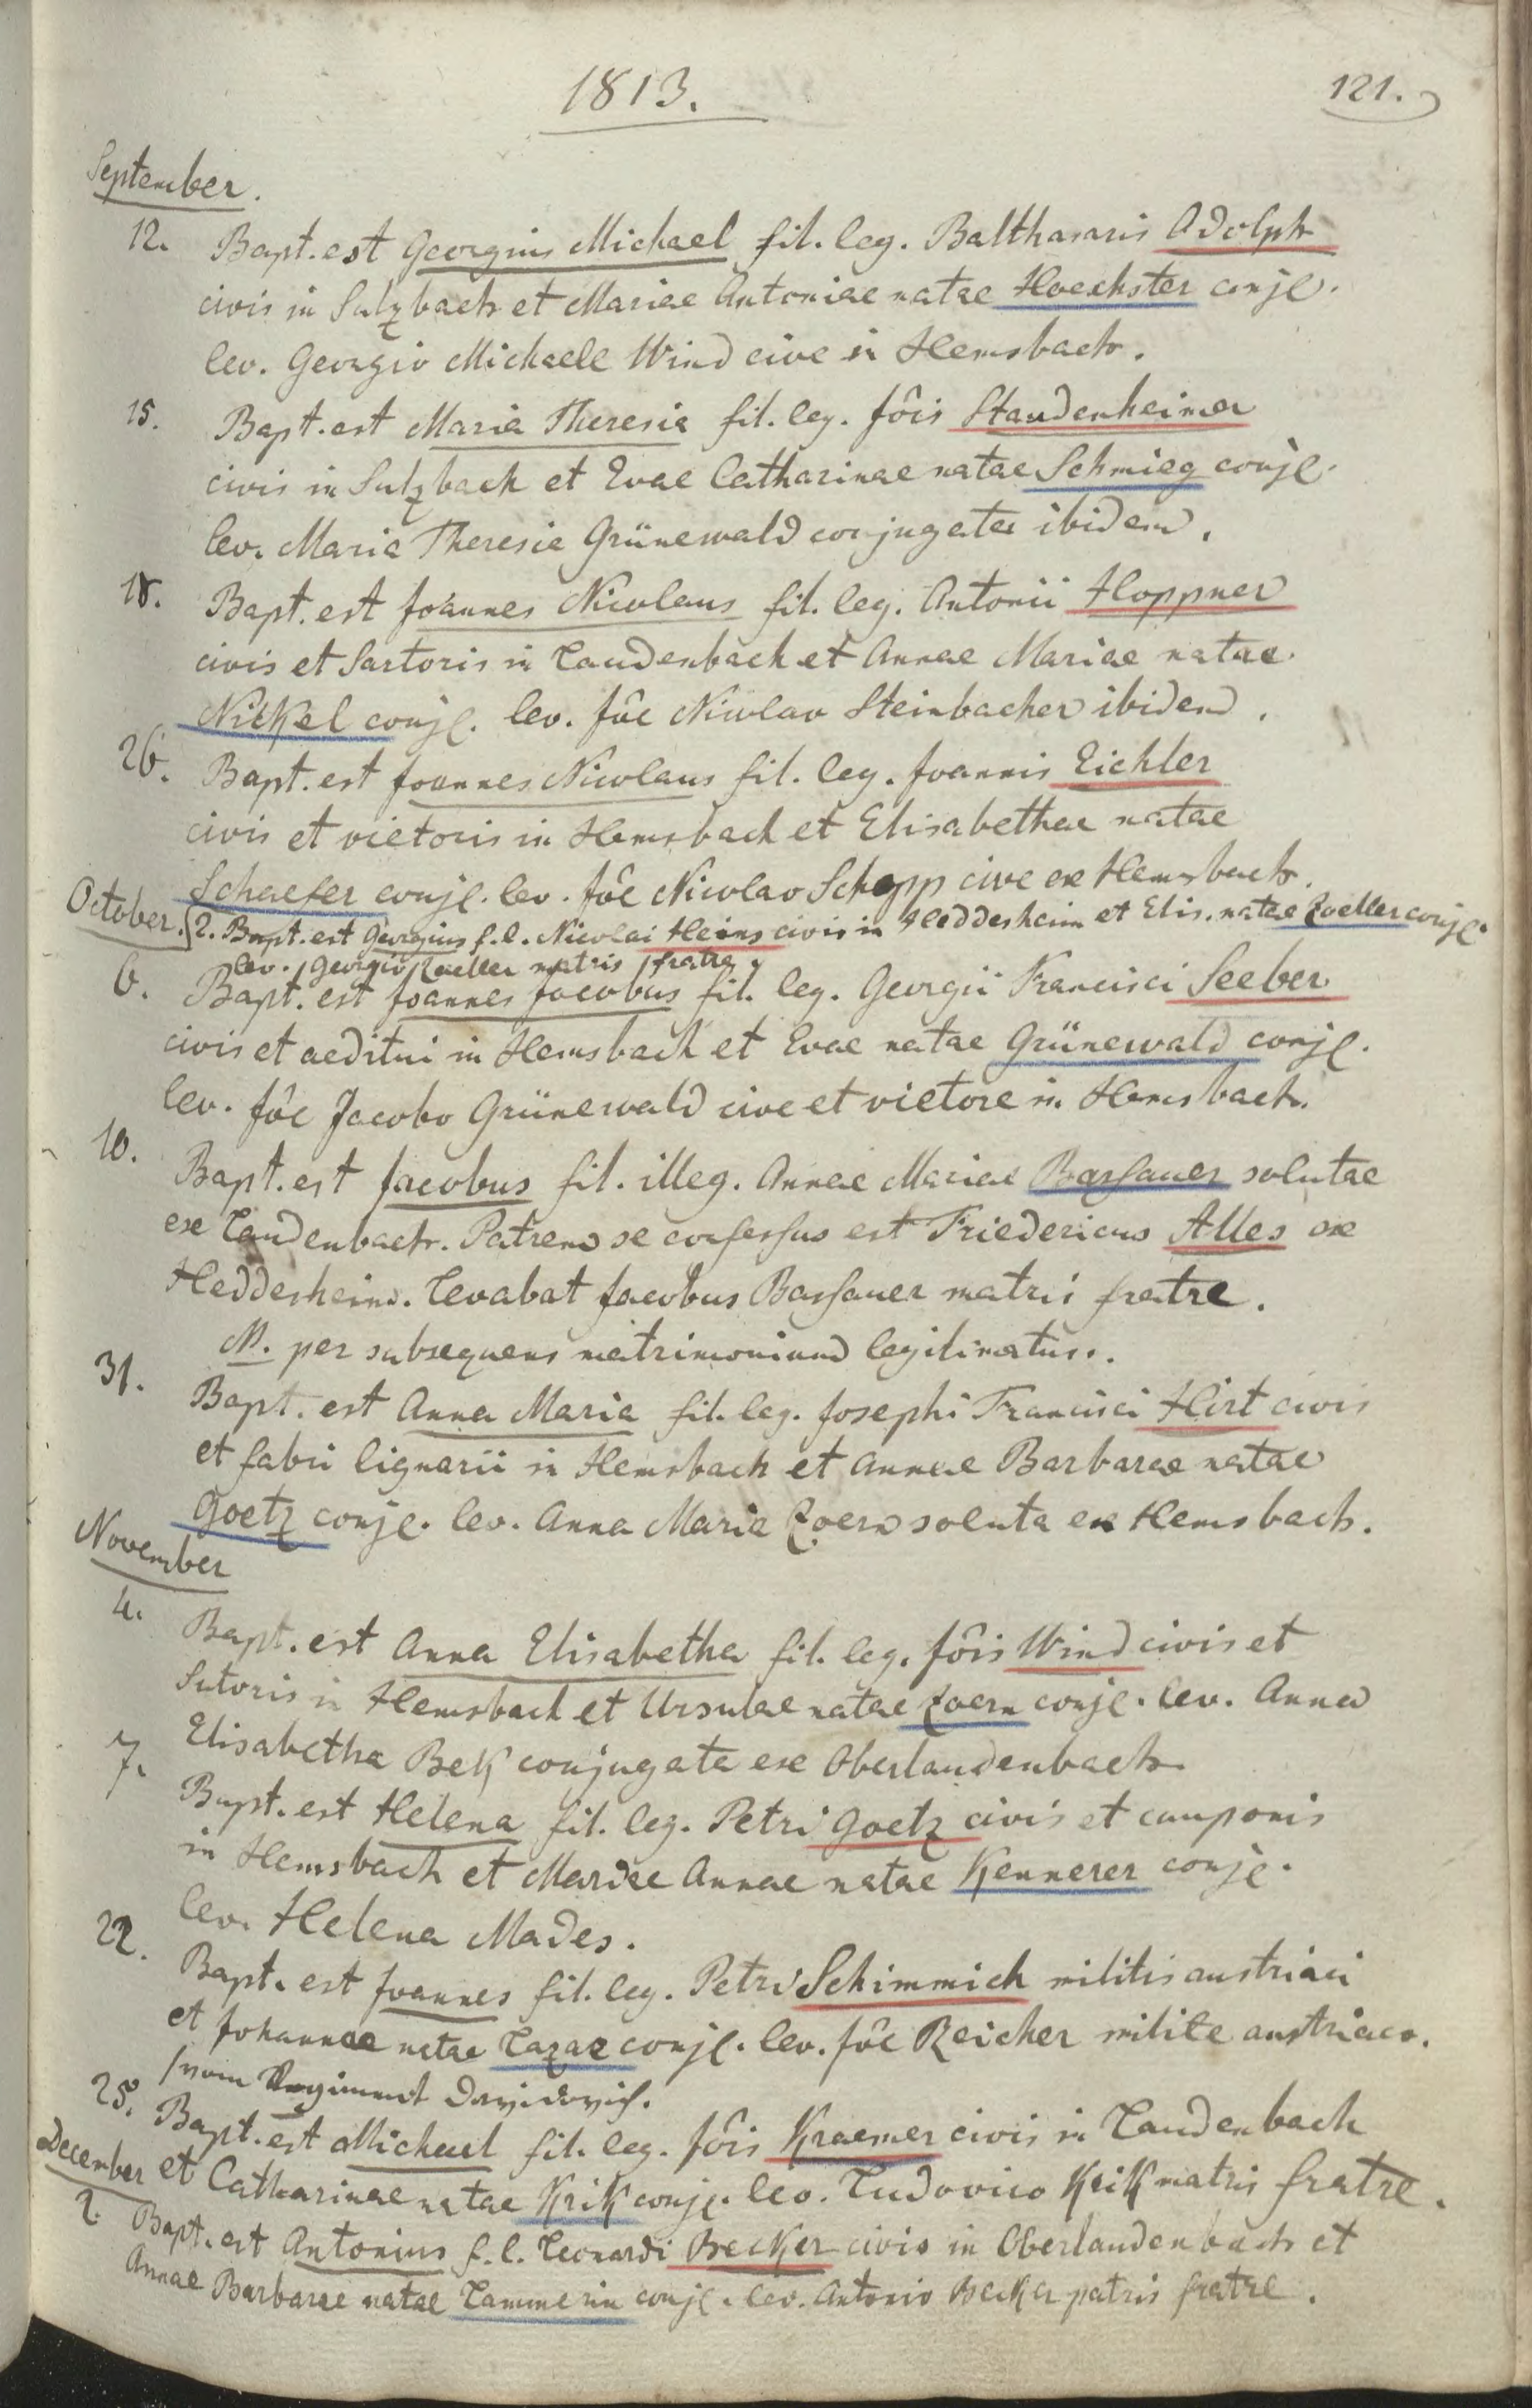 1813.
121.
September.
12. Bapt. est Georgius Michael fil. leg. Balthasaris Adolph
civis in Sulzbach et Mariae Antoniae natae Hoechster conjg.
lev. Georgio Michaele Wind cive in Hemsbach.
15. Bapt. est Maria Theresia fil. leg. Jôis Staudenheimer
civis in Sulzbach et Evae Catharinae natae Schmieg conjg.
lev. Maria Theresia Grünewald conjugata ibidem.
18. Bapt. est Joannes Nicolaus fil. leg. Antonii Hoppner
civis et Sartoris in Laudenbach et Annae Mariae natae
Nickel conjg. lev. Jôe Nicolao Steinbacher ibidem.
26. Bapt. est Joannes Nicolaus fil. leg. Joannis Eichler
civis et vietoris in Hemsbach et Elisabethae natae
Schaefer conjg. lev. Jôe Nicolao Schopp cive ex Hemsbach.
October. 2. Bapt. est Georgius f. l. Nicolai Heins civis in Heddesheim et Elis. natae Zoeller conjg.
lev. Georgio Zoeller matris fratre.
6. Bapt. est Joannes Jacobus fil. leg. Georgii Francisci Seeber
civis et aeditui in Hemsbach et Evae natae Grünewald conjg.
lev. Jôe Jacobo Grünewald cive et vietore in Hemsbach.
10. Bapt. est Jacobus fil. illeg. Annae Mariae Bassauer solutae
ex Laudenbach. Patrem se confessus est Friedericus Alles ex
Heddesheim. Levabat Jacobus Bassauer matris fratre.
N. per subsequens matrimonium legitimatus.
31. Bapt. est Anna Maria fil. leg. Josephi Francisci Hirt civis
et fabri lignarii in Hemsbach et Annae Barbarae natae
Goetz conjg. lev. Anna Maria Zoern soluta ex Hemsbach.
November
4. Bapt. est Anna Elisabetha fil. leg. Jôis Wind civis et
Sutoris in Hemsbach et Ursulae natae Zoern conjg. lev. Anna
Elisabetha Bek conjugata ex Oberlaudenbach.
7. Bapt. est Helena fil. leg. Petri Goetz civis et cauponis
in Hemsbach et Mariae Annae natae Kennerer conjg.
lev. Helena Mades.
22. Bapt. est Joannes fil. leg. Petri Schimmich militis austriaci
et Johannae natae Lazae conjg. lev. Jôe Reicher milite austriaco.
vom Regiment Davidovich.
25. Bapt. est Michael fil. leg. Jôis Kraemer civis in Laudenbach
et Catharinae natae Krik conjg. lev. Ludovico Krik matris fratre.
December
2. Bapt. est Antonius f. l. Leonardi Becker civis in Oberlaudenbach et
Annae Barbarae natae Lammerin conjg. lev. Antonio Becker patris fratre.